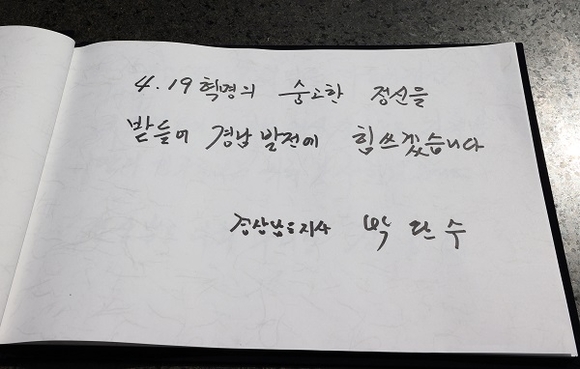 4.19혁명의 숭고한 정신을
받들어 경남발전에 힘쓰겠습니다
경상남도지사 박완수